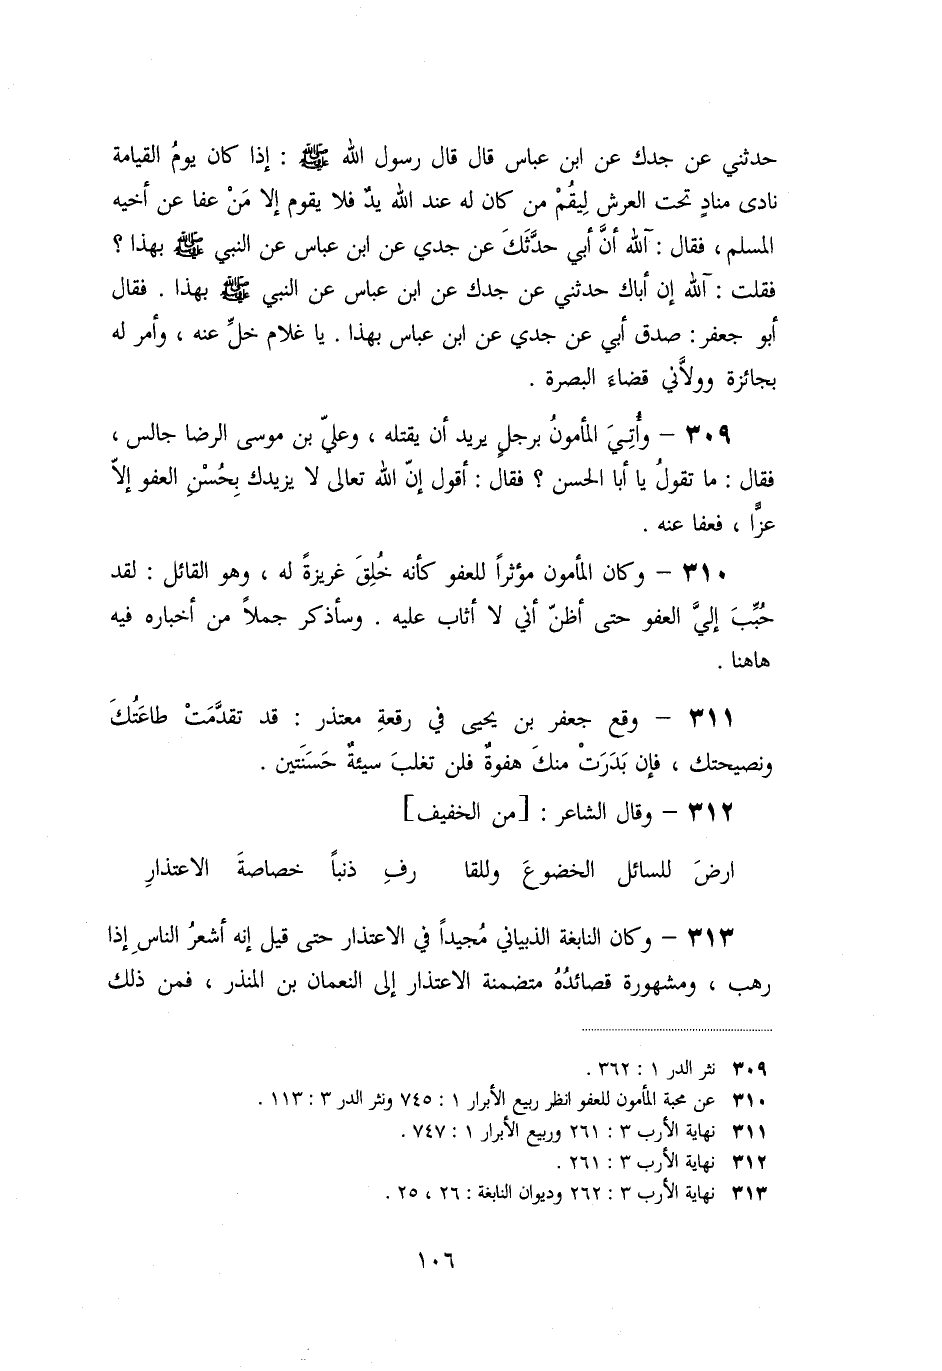 حدثني عن جدك عن ابن عباس قال قال رسول الله ﷺ : إذا كان يومُ القيامة
نادى منادٍ تحت العرش لِيقُمْ من كان له عند الله يدٌ فلا يقوم إلا مَنْ عفا عن أخيه
المسلم ، فقال : آلله أنَّ أبي حدَّثَكَ عن جدي عن ابن عباس عن النبي ﷺ بهذا ؟
فقلت : آلله إن أباك حدثني عن جدك عن ابن عباس عن النبي ﷺ بهذا . فقال
أبو جعفر : صدق أبي عن جدي عن ابن عباس بهذا . يا غلام خلِّ عنه ، وأمر له
بجائزة وولاَّني قضاءَ البصرة .
٣٠٩ – وأُتِيَ المأمونُ برجلٍ يريد أن يقتله ، وعليّ بن موسى الرضا جالس ،
فقال : ما تقولُ يا أبا الحسن ؟ فقال : أقول إنّ الله تعالى لا يزيدك بِحُسْنِ العفو إلاّ
عزًّا ، فعفا عنه .
٣١٠ – وكان المأمون مؤثراً للعفو كأنه خُلِقَ غريزةً له ، وهو القائل : لقد
حُبِّبَ إليَّ العفو حتى أظنّ أني لا أثاب عليه . وسأذكر جملاً من أخباره فيه
هاهنا .
٣١١ – وقع جعفر بن يحيى في رقعةِ معتذر : قد تقدَّمَتْ طاعَتُكَ
ونصيحتك ، فإن بَدَرَتْ منكَ هفوةٌ فلن تغلبَ سيئةٌ حَسَنَتين .
٣١٢ – وقال الشاعر : [من الخفيف]
ارضَ للسائل الخضوعَ وللقا رفِ ذنباً خصاصةَ الاعتذارِ
٣١٣ – وكان النابغة الذبياني مُجيداً في الاعتذار حتى قيل إنه أشعرُ الناسِ إذا
رهب ، ومشهورة قصائدُهُ متضمنة الاعتذار إلى النعمان بن المنذر ، فمن ذلك
٣٠٩ نثر الدر ١ : ٣٦٢ .
٣١٠ عن محبة المأمون للعفو انظر ربيع الأبرار ١ : ٧٤٥ ونثر الدر ٣ : ١١٣ .
٣١١ نهاية الأرب ٣ : ٢٦١ وربيع الأبرار ١ : ٧٤٧ .
٣١٢ نهاية الأرب ٣ : ٢٦١ .
٣١٣ نهاية الأرب ٣ : ٢٦٢ وديوان النابغة : ٢٦ ، ٢٥ .
١٠٦